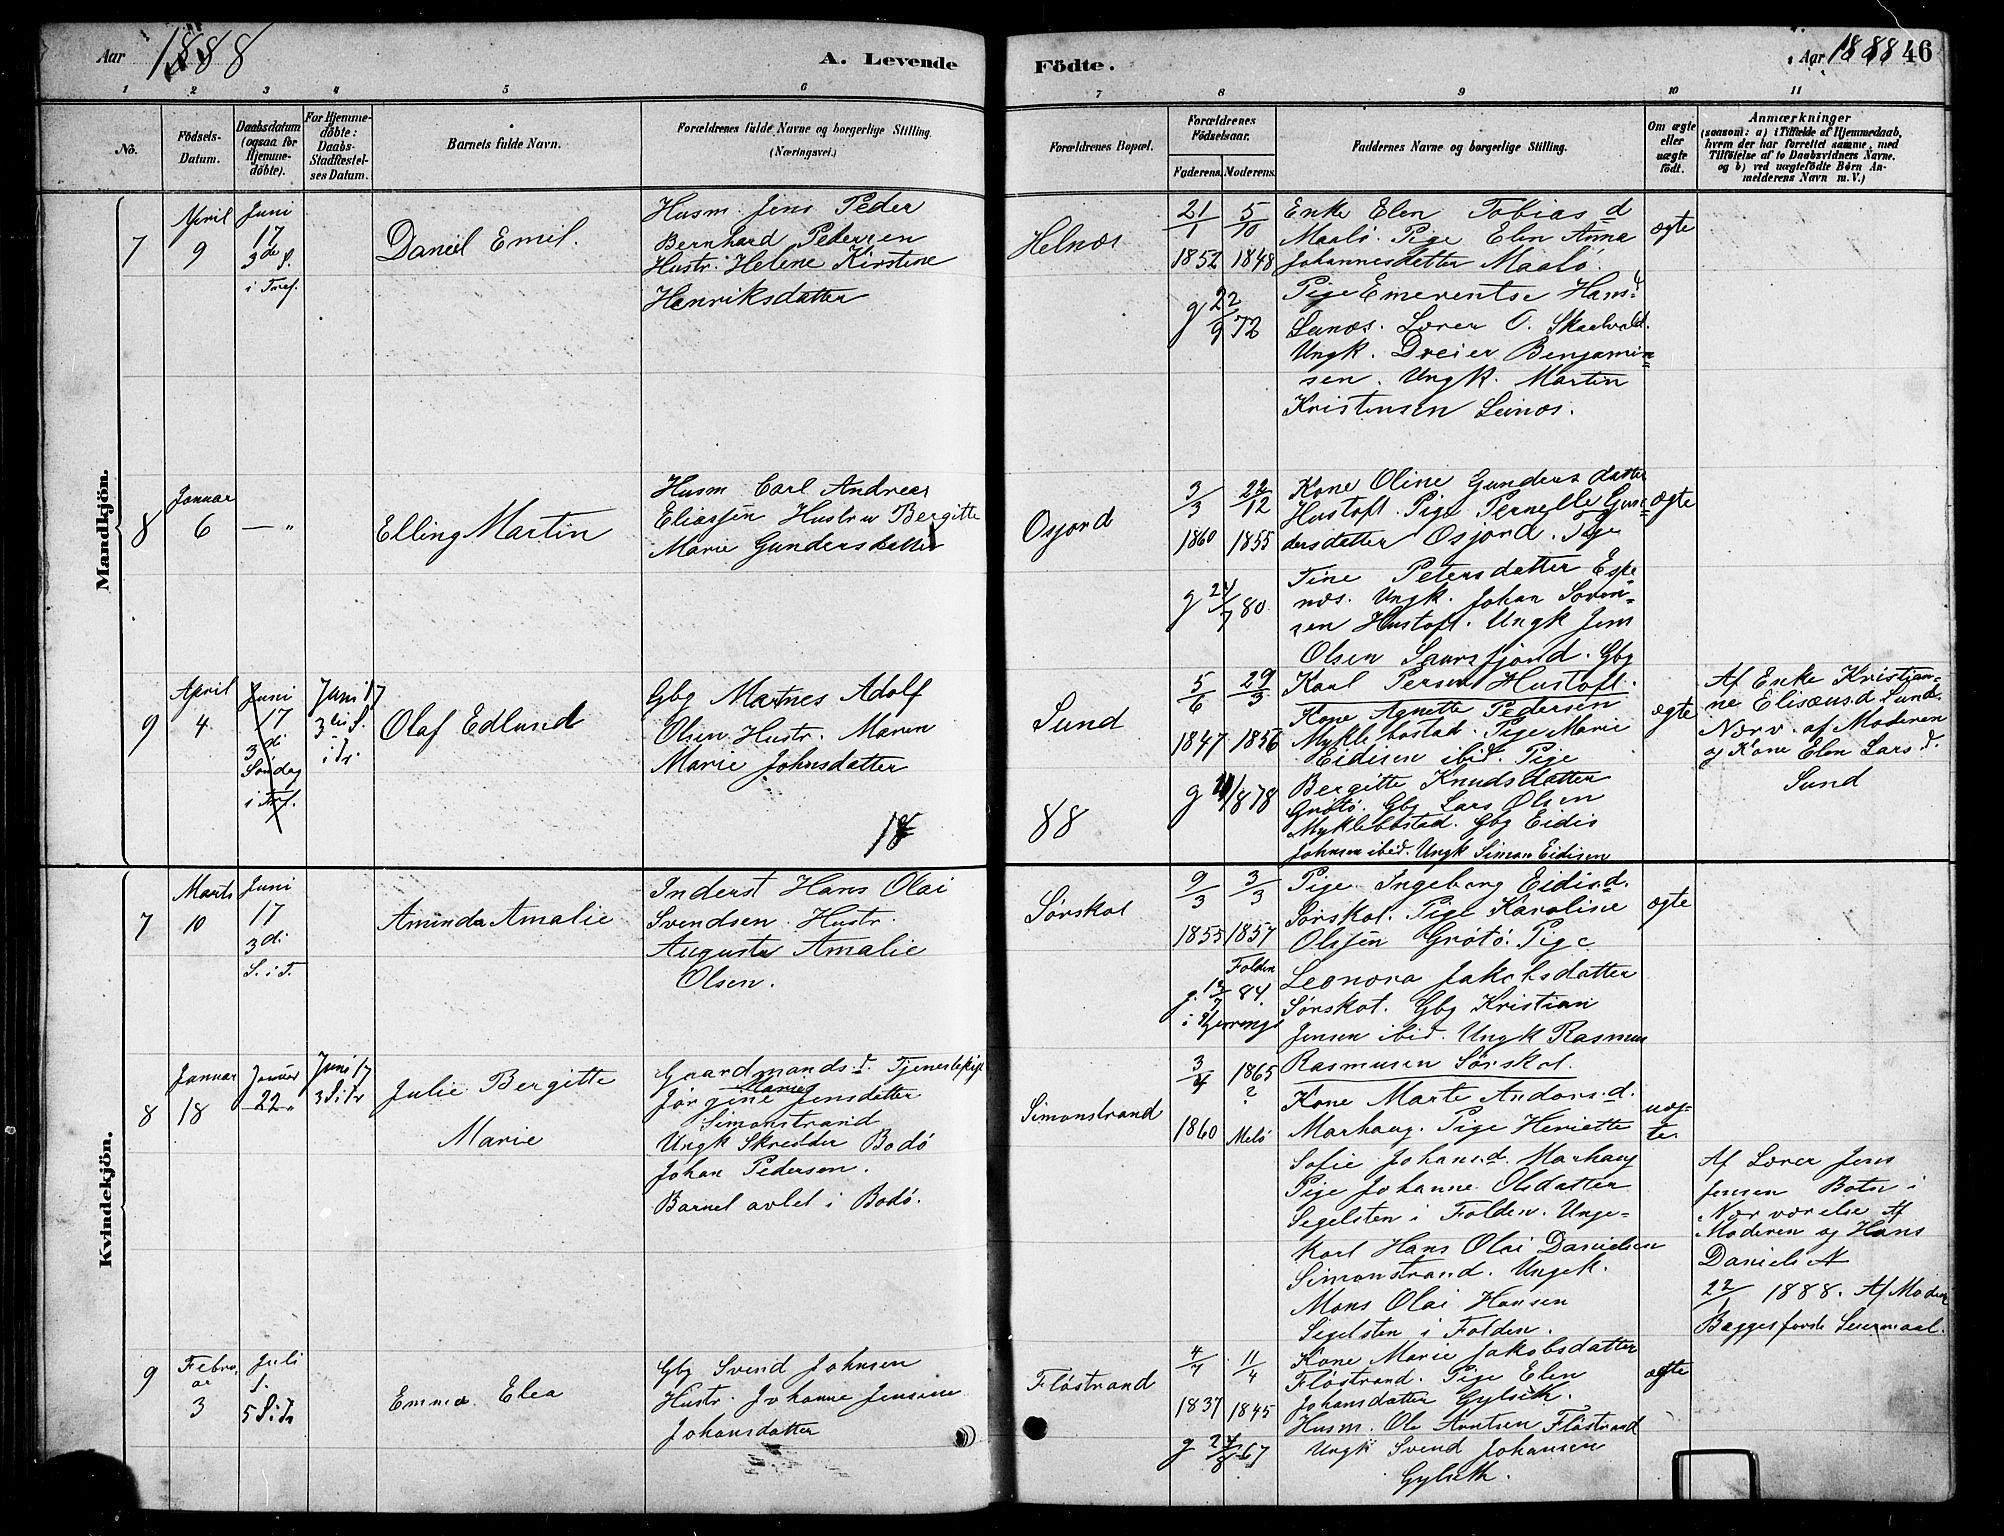 Aar 1888
A. Levende
Födte.
Aar 1888 46
1 2 3 4 5 6 7 8 9 10 11
No.
Födsels-Datum.
Daabsdatum (ogsaa for Hjemme-döbte).
For Hjemme-döbte: Daabs-Stadfæstel-ses Datum.
Barnets fulde Navn.
Forældrenes fulde Navne og borgerlige Stilling.
(Næringsvei.)
Forældrenes Bopæl.
Forældrenes Födselsaar.
Faderens. Moderens.
Faddernes Navne og borgerlige Stilling.
Om ægte eller uægte födt.
Anmærkninger
(saasom: a) i Tilfælde af Hjemmedaab,
hvem der har forrettet samme, med
Tilföielse af to Daabsvidners Navne.
og b) ved uægtefödte Börn An-
melderens Navn m. V.)
Mandkjön.
7
April
9
Juni
17
3de S.
i Tref.
Daniel Emil.
Husm. Jens Peder
Bernhard Petersen
Hustr. Helene Kirstine
Henriksdatter
Helnæs
21/1 1852
5/10 1848
g 22/9 72
Enke Elen Tobiasd
Maalö. Pige Elen Anna
Johannesdatter Maalö.
Pige Emerentse Hansd
Leinæs. Lærer O. Skaalvold.
Ungk. Dreier Benjamin=
sen. Ungk. Martin
Kristensen Leinæs.
ægte
8
Januar
6
— "
Elling Martin
Husm Carl Andreas
Eliassen Hustru Bergitte
Marie Gundersdatter
Osjord
3/3 1860
22/12 1855
g 24/7 80.
Kone Oline Gundersdatter
Hustoft. Pige Pernelle Gun=
dersdatter Osjord. Pige
Tine Petersdatter Espe
næs. Ungk. Johan Soren=
sen Hustoft. Ungk Jens
Olsen Saursfjord. Gbg
Karl Persen Hustoft.
ægte
9
April
4
Juni
17
3di
Søndag
i Tref.
Juni 17
3die S.
i Tr.
Olaf Edlund
Gbg Martnes Adolf
Olsen Hustr. Maren
Marie Johnsdatter
Sund
5/6 1847
29/3 1856
Kone Agnette Pedersen
Myklebostad. Pige Marie
Eidisen ibid. Pige
Bergitte Knudsdatter
Grøtø. Gbg Lars Olsen
Myklebostad. Gbg Eidis
Johnsen ibid. Ungk Simon Eidisen
ægte
Af Enke Kristian-
ne Elisæusd Sund.
Nærv. af Moderen
og Kone Elen Larsd.
Sund
18
88
Kvindekjön.
7
Marts
10
Juni
17
3di
S. i T.
Aminda Amalie
Inderst Hans Olai
Svendsen. Hustr.
Augusta Amalie
Olsen.
Sørskot
9/3 1855
3/3 1857
Folden
Pige Ingeborg Eidisd.
Sørskot. Pige Karoline
Olsen Grøtø. Pige
Leonora Jakobsdatter
Sørskot. Gbg Kristian
Jensen ibid. Ungk Rasmus
Rasmusen Sørskot.
ægte
8
Januar
18
Januar
22
Juni 17
3 S i Tr
Julie Bergitte
Marie
Gaardmandsd. Tjenestepige
Jørgine Marie Jensdatter
Simonstrand
Ungk Skredder Bodö
Johan Pedersen.
Barnet avlet i Bodö.
Simonstrand
3/4 1860
1865
?
Melö
Kone Marte Andorsd.
Marhaug. Pige Henriette
Sofie Johansd. Marhaug
Pige Johanne Olsdatter
Segelsten i Folden. Unge=
karl Hans Olai Danielsen
Simonstrand. Ungk.
Mons Olai Hansen
Segelsten i Folden.
uæg-
te
Af Lærer Jens
Jensen Botn i
Nærværelse af
Moderen og Hans
Daniels
22/1 1888. Af Moder
9
Febru
ar
3
Juli
1.
5 S. i Tr
Emma Elea
Gbg Svend Johnsen
Hustr. Johanne Jensine
Johansdatter
Flöstrand
4/7 1837
11/4 1845
Kone Marie Jakobsdatter
Flöstrand. Pige Elen
Johansdatter Gylseth.
Husm. Ole Arntsen Flöstrand
Ungk Svend Johansen
Gylseth.
ægte